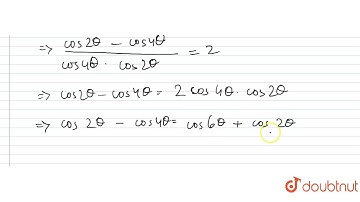 ⇒ cos2θ − cos4θ / cos4θ · cos2θ = 2
⇒ cos2θ − cos4θ = 2 cos 4θ · cos2θ
⇒ cos 2θ − cos4θ = cos6θ + cos 2θ
doubtnut